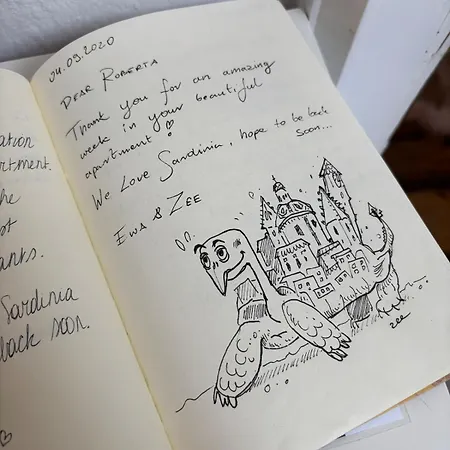 ation
rtment.
he
st
anks.
Sardinia
back soon.
04.09.2020
DEAR ROBERTA
Thank you for an amazing
week in your beautiful
apartment!
We Love Sardinia, hope to be back
soon...
EWA & ZEE
zee